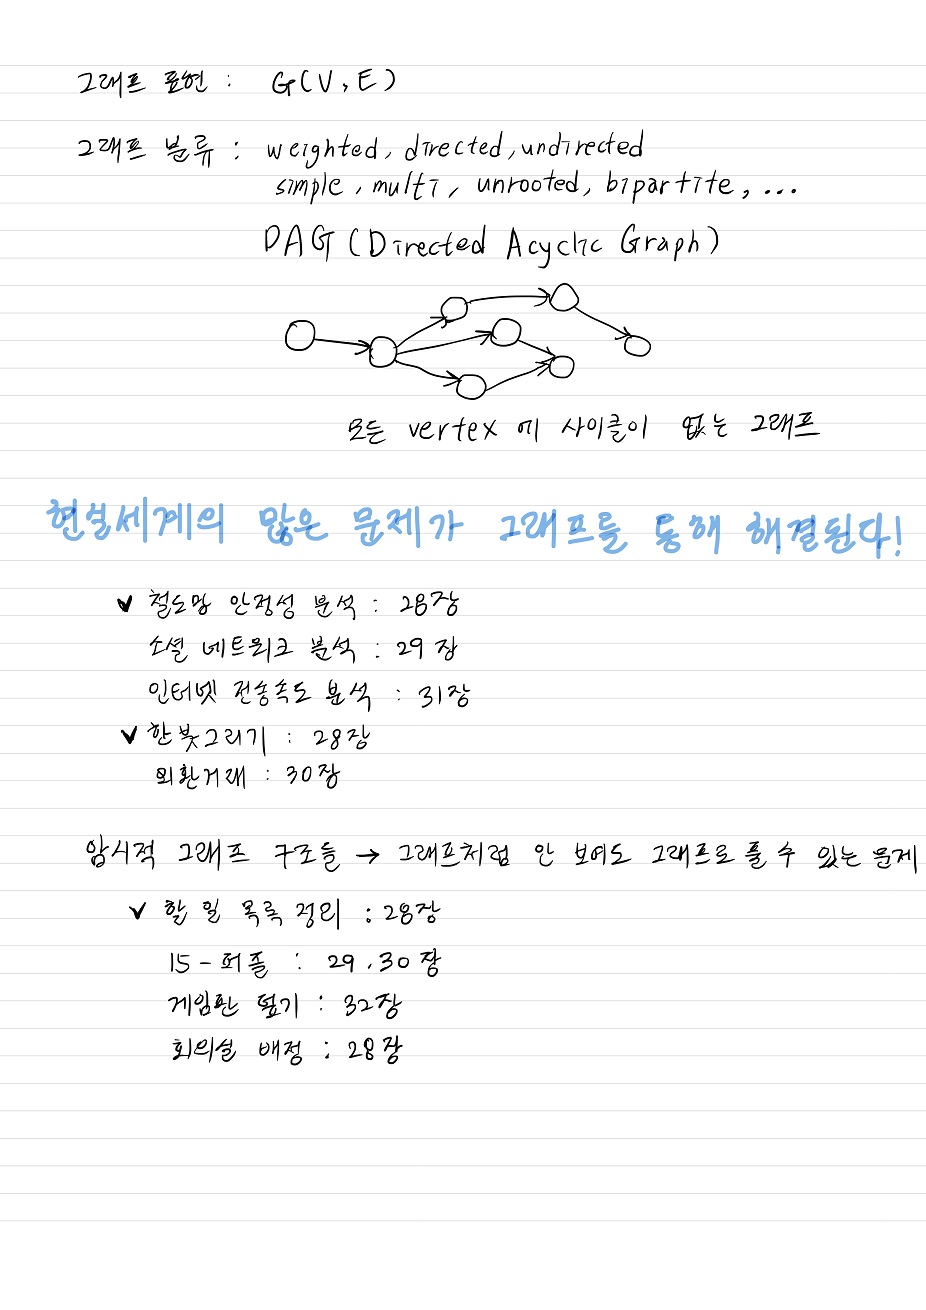 그래프 표현 : G(V, E)
그래프 분류 : weighted, directed, undirected
simple, multi, unrooted, bipartite, ...
DAG (Directed Acyclic Graph)
모든 vertex 에 사이클이 없는 그래프
현실세계의 많은 문제가 그래프를 통해 해결된다!
✓ 철도망 안정성 분석 : 28장
소셜 네트워크 분석 : 29장
인터넷 전송속도 분석 : 31장
✓ 한붓그리기 : 28장
외환거래 : 30장
암시적 그래프 구조들 → 그래프처럼 안 보여도 그래프로 풀 수 있는 문제
✓ 할 일 목록 정리 : 28장
15-퍼즐 : 29, 30장
게임판 덮기 : 32장
회의실 배정 : 28장